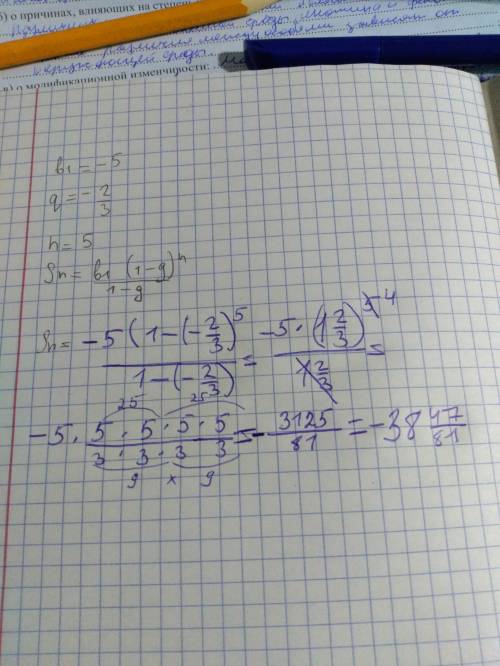 б) о причинах, влияющих на степень
в) о модификационной изменчивости:
b₁ = -5
q = -2/3
n = 5
Sn = b₁ (1-q)ⁿ / 1-q
Sn = -5 (1-(-2/3)⁵ / 1-(-2/3) = -5 · (1 2/3)⁵ ⁴ / 1 2/3 =
25 25
-5 · 5 · 5 · 5 · 5 / 3 · 3 · 3 3 = - 3125/81 = -38 47/81
9 × 9